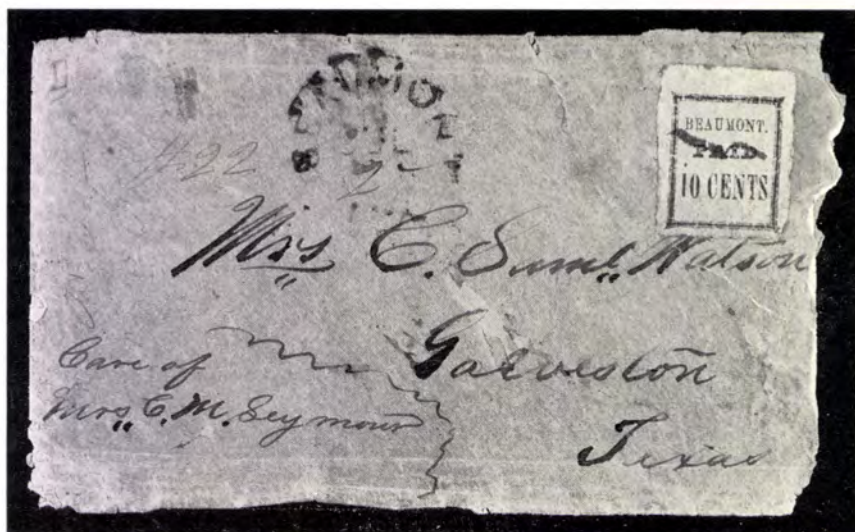 BEAUMONT
BEAUMONT.
PAID
10 CENTS
#22
Mrs C. Saml. Watson
Galveston
Texas
Care of
Mrs. C. M. Seymour